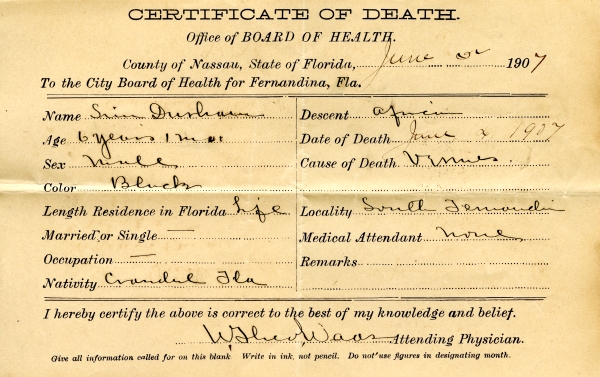 CERTIFICATE OF DEATH.
Office of BOARD OF HEALTH.
County of Nassau, State of Florida, June 2 1907
To the City Board of Health for Fernandina, Fla.
Name Sim Durham
Age 6 years 1 mo.
Sex Male
Color Black
Length Residence in Florida Life
Married or Single —
Occupation —
Nativity Crandal Fla
Descent Africa
Date of Death June 2 1907
Cause of Death
Locality South Fernandin
Medical Attendant None
Remarks
I hereby certify the above is correct to the best of my knowledge and belief.
Attending Physician.
Give all information called for on this blank Write in ink, not pencil. Do not use figures in designating month.